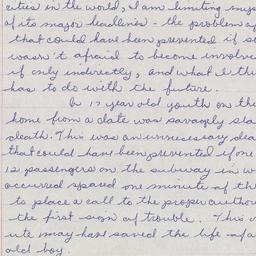 cities in the world, I am limiting mys
of its major headlines - the problem of
that could have been prevented if so
wasn't afraid to become involve
if only indirectly, and what I th
has to do with the future.
A 17 year old youth on the
home from a date was savagely sta
death. This was an unnecessary dea
that could have been prevented if one
12 passengers on the subway in w
occurred spared one minute of th
to place a call to the proper author
the first sign of trouble. This
ute may have saved the life of a
old boy.